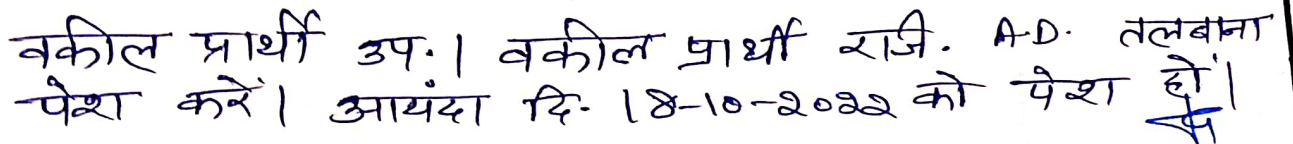 वकील प्रार्थी उप.। वकील प्रार्थी राजि. A.D. तलबाना
पेश करें। आयंदा दि. 18-10-2022 को पेश हों।